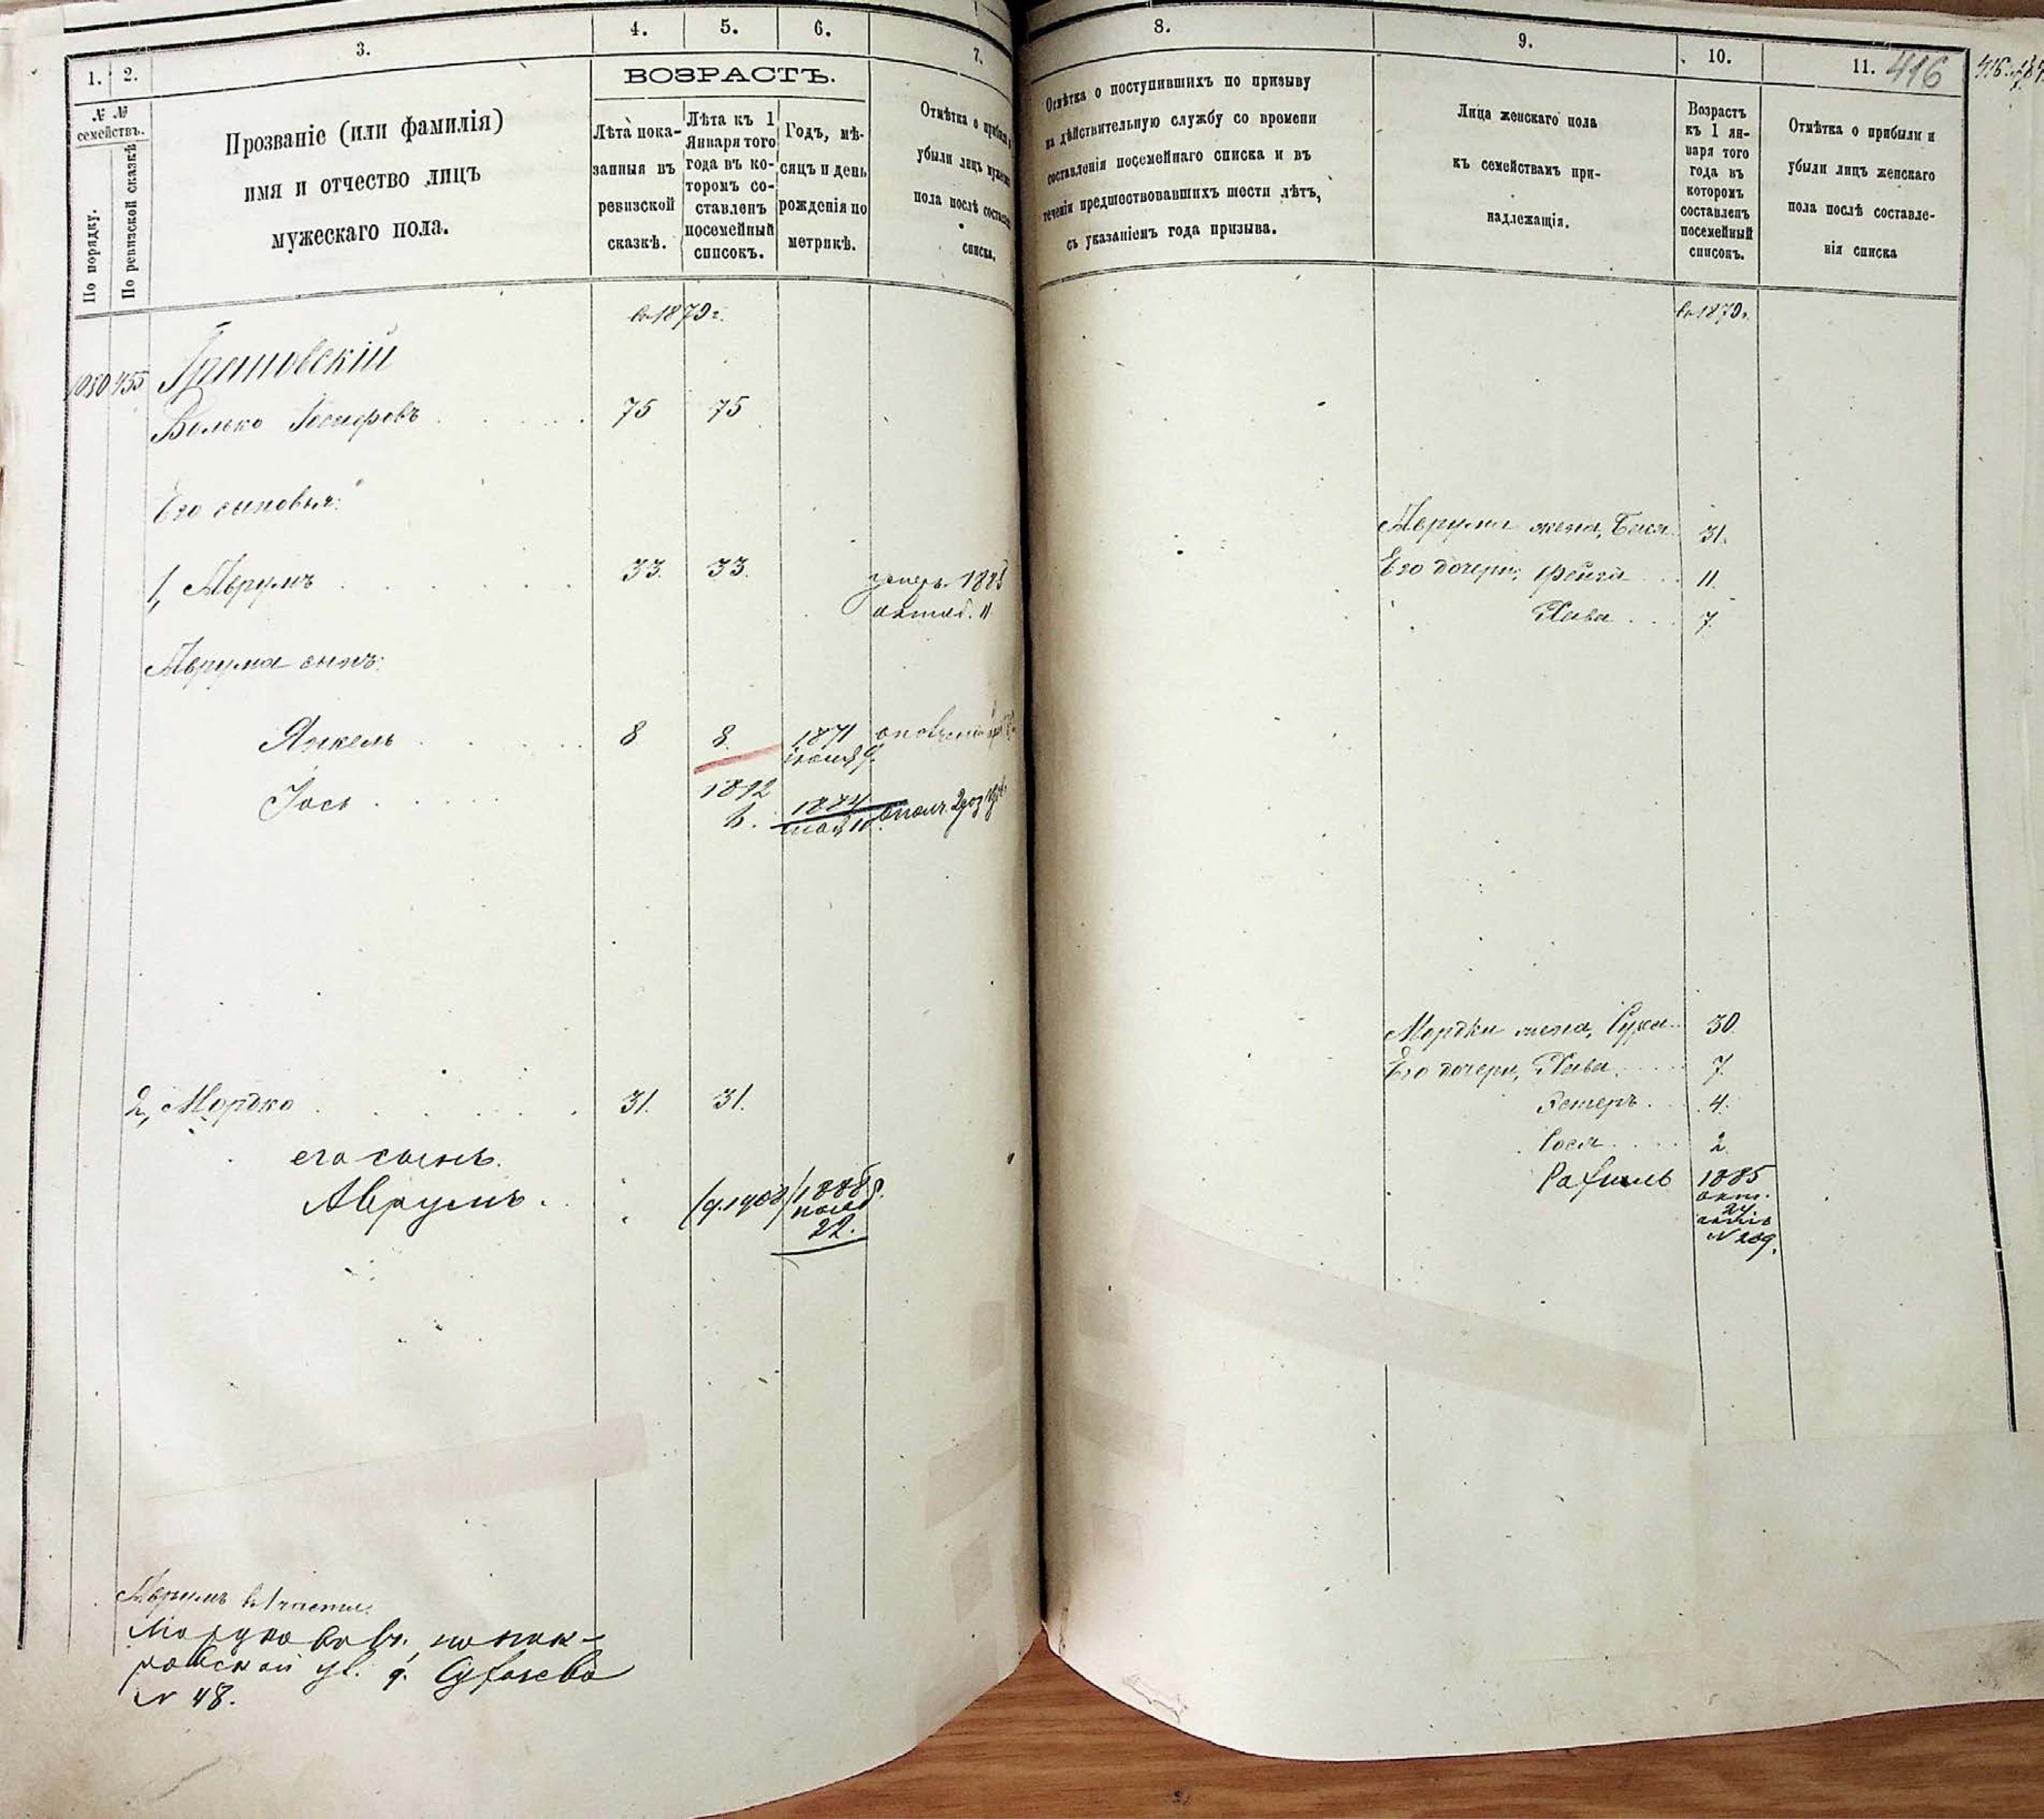 1.
2.
3.
4.
5.
6.
7.
ВОЗРАСТЪ.
№ №
семействъ.
По порядку.
По ревизской сказкѣ
Прозваніе (или фамилія)
имя и отчество лицъ
мужескаго пола.
Лѣта пока-
занныя въ
ревизской
сказкѣ.
Лѣта къ 1
Января того
года въ ко-
торомъ со-
ставленъ
посемейный
списокъ.
Годъ, мѣ-
сяцъ и день
рожденія по
метрикѣ.
Отмѣтка о прибыли
убыли лицъ
пола послѣ
списка.
въ 1879 г.
1080 455
Волько Іосифовъ 75 75
Его сыновья:
1, Аврумъ 33. 33.
1885
октяб. 11
Аврума сынъ:
Янкель 8 8. 1871
Іось 1892
6. 1884
2, Мордко 31. 31.
его сынъ.
Аврумъ. 1888
22.
Аврумъ въ 1 части.
ул. д.
№ 48.
8.
9.
10.
11. 416
Отмѣтка о поступившихъ по призыву
на дѣйствительную службу со времени
составленія посемейнаго списка и въ
теченіи предшествовавшихъ шести лѣтъ,
съ указаніемъ года призыва.
Лица женскаго пола
къ семействамъ при-
надлежащія.
Возрастъ
къ 1 ян-
варя того
года въ
которомъ
составленъ
посемейный
списокъ.
Отмѣтка о прибыли и
убыли лицъ женскаго
пола послѣ составле-
нія списка
въ 1879 г.
Аврума жена, Бася 31.
Его дочери: Фейга 11.
Хава 7.
Мордки жена, 30.
Его дочери, Хава 7
Эстеръ 4.
Сося 2
1885
окт.
24
№ 209.